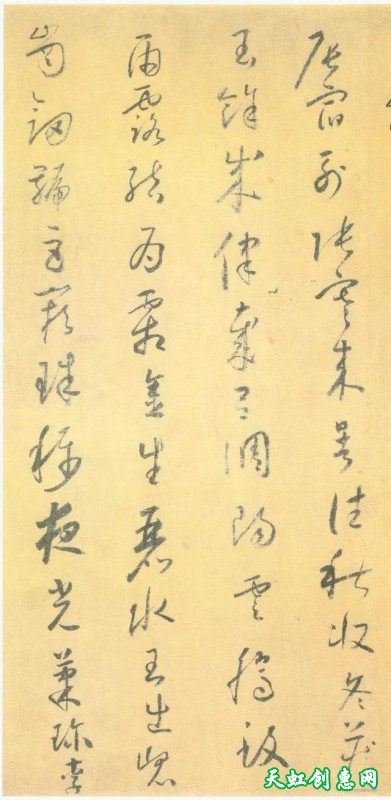 辰宿列張寒来暑往秋收冬藏
閏餘成律歲呂調陽雲騰致
雨露結為霜金生麗水玉出崐
崗劍號巨闕珠稱夜光菓珍李
天虹创意网